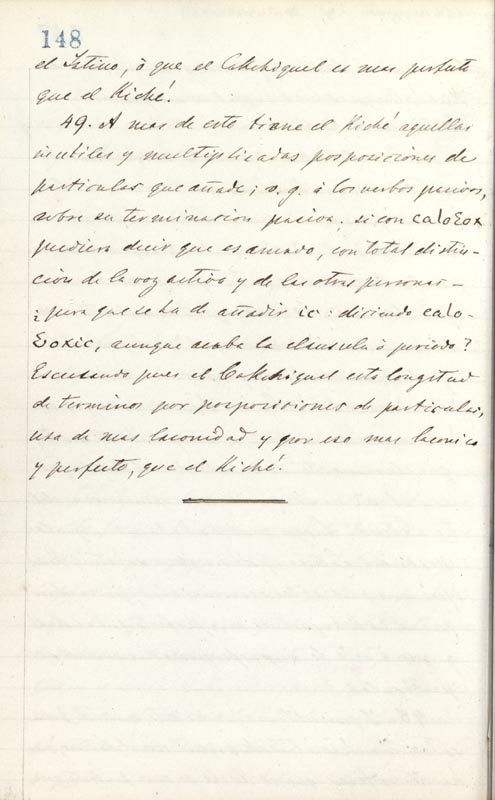 148
el Latino, ò que el Cakchiquel es mas perfecto
que el Kiché.
49. A mas de esto tiene el Kiché aquellas
inutiles y multiplicadas posposiciones de
particulas que añade; v. g. á los verbos pasivos,
sobre su terminacion pasiva: si con caloƐox
pudiera decir que es amado, con total distin-
cion de la voz activa y de las otras personas -
¿para que se ha de añadir ic: diciendo calo-
Ɛoxic, aunque acaba la clausula ò periodo?
Escusando pues el Cakchiquel esta longitud
de terminos por posposiciones de particulas,
usa de mas laconidad y por eso mas laconico
y perfecto, que el Kiché.